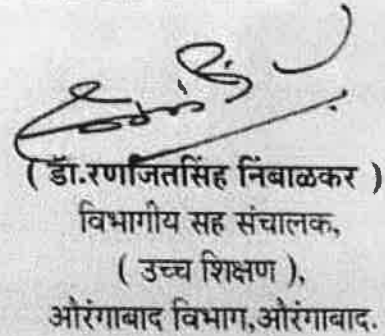 ( डॉ.रणजितसिंह निंबाळकर )
विभागीय सह संचालक,
( उच्च शिक्षण ),
औरंगाबाद विभाग,औरंगाबाद.